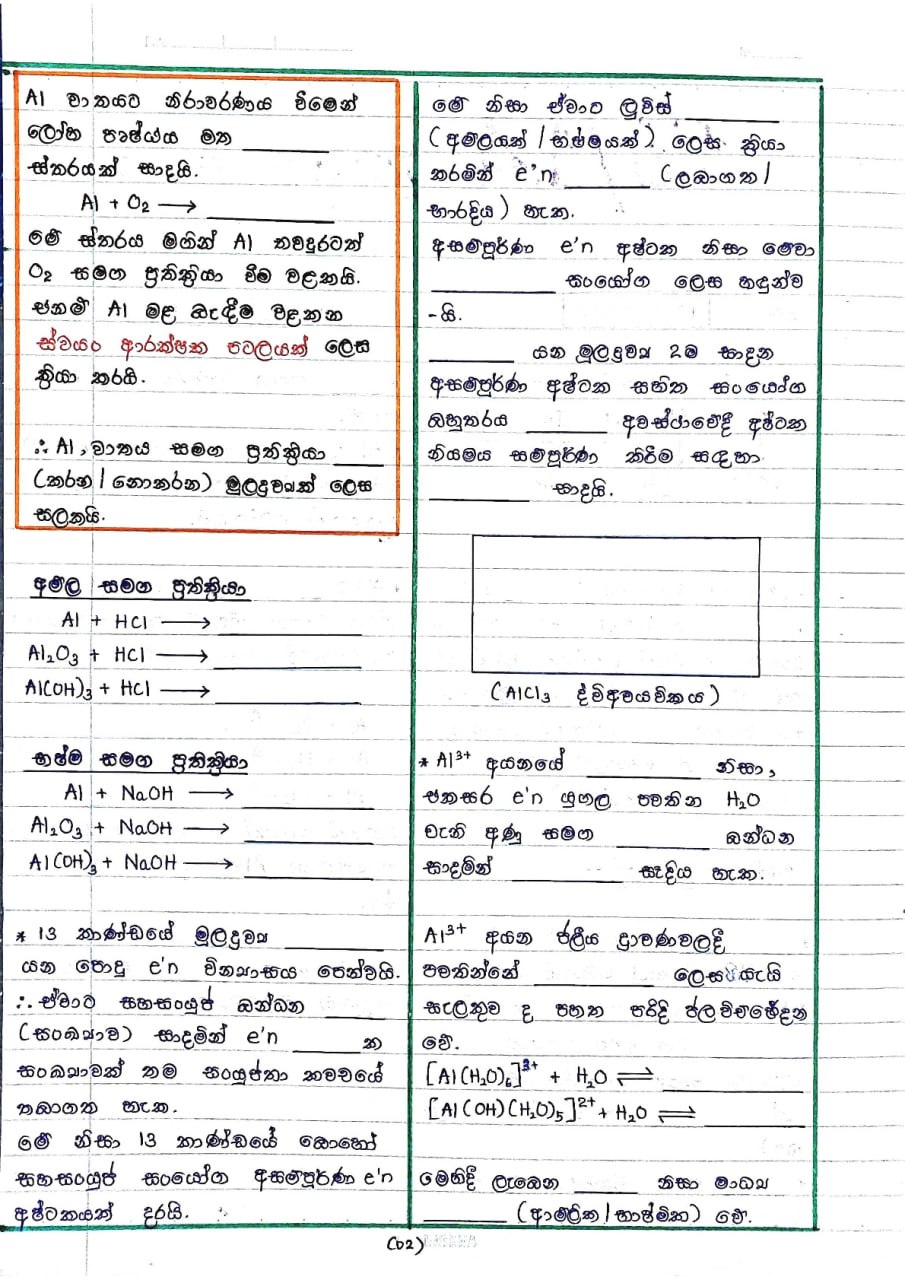 Al වාතයට නිරාවරණය වීමෙන්
ලෝහ පෘෂ්ඨය මත ________
ස්තරයක් සාදයි.
Al + O₂ ⟶ ________
මේ ස්තරය මගින් Al තවදුරටත්
O₂ සමග ප්‍රතික්‍රියා වීම වළකයි.
එනම් Al මළ බැඳීම වළකන
ස්වයං ආරක්ෂක පටලයක් ලෙස
ක්‍රියා කරයි.
∴ Al, වාතය සමග ප්‍රතික්‍රියා ____
(කරන / නොකරන) මූලද්‍රව්‍යක් ලෙස
සලකයි.
අම්ල සමග ප්‍රතික්‍රියා
Al + HCl ⟶ ________
Al₂O₃ + HCl ⟶ ________
Al(OH)₃ + HCl ⟶ ________
භෂ්ම සමග ප්‍රතික්‍රියා
Al + NaOH ⟶ ________
Al₂O₃ + NaOH ⟶ ________
Al(OH)₃ + NaOH ⟶ ________
* 13 කාණ්ඩයේ මූලද්‍රව්‍ය ________
යන පොදු e'n වින්‍යාසය පෙන්වයි.
∴ ඒවාට සහසංයුජ බන්ධන ____
(සංඛ්‍යාව) සාදමින් e'n ____ ක
සංඛ්‍යාවක් තම සංයුජතා කවචයේ
තබාගත හැක.
මේ නිසා 13 කාණ්ඩයේ බොහෝ
සහසංයුජ සංයෝග අසම්පූර්ණ e'n
අෂ්ටකයක් දරයි.
මේ නිසා ඒවාට ලුවිස් ________
(අම්ලයක් / භෂ්මයක්) ලෙස ක්‍රියා
කරමින් e'n ________ (ලබාගත /
භාරදිය) හැක.
අසම්පූර්ණ e'n අෂ්ටක නිසා මේවා
________ සංයෝග ලෙස හඳුන්ව
-යි.
________ යන මූලද්‍රව්‍ය 2ම සාදන
අසම්පූර්ණ අෂ්ටක සහිත සංයෝග
බහුතරය ________ අවස්ථාවේදී අෂ්ටක
නියමය සම්පූර්ණ කිරීම සඳහා
________ සාදයි.
(AlCl₃ ද්වීඅවයවිකය)
* Al³⁺ අයනයේ ________ නිසා,
එකසර e'n යුගල පවතින H₂O
වැනි අණු සමග ________ බන්ධන
සාදමින් ________ සෑදිය හැක.
Al³⁺ අයන ජලීය ද්‍රාවණවලදී
පවතින්නේ ________ ලෙස යැයි
සැලකුව ද පහත පරිදි ජලවිච්ඡේදන
වේ.
[Al(H₂O)₆]³⁺ + H₂O ⇌ ________
[Al(OH)(H₂O)₅]²⁺ + H₂O ⇌ ________
මෙහිදී ලැබෙන ____ නිසා මාධ්‍ය
________ (ආම්ලික / භාෂ්මික) වේ.
(02)